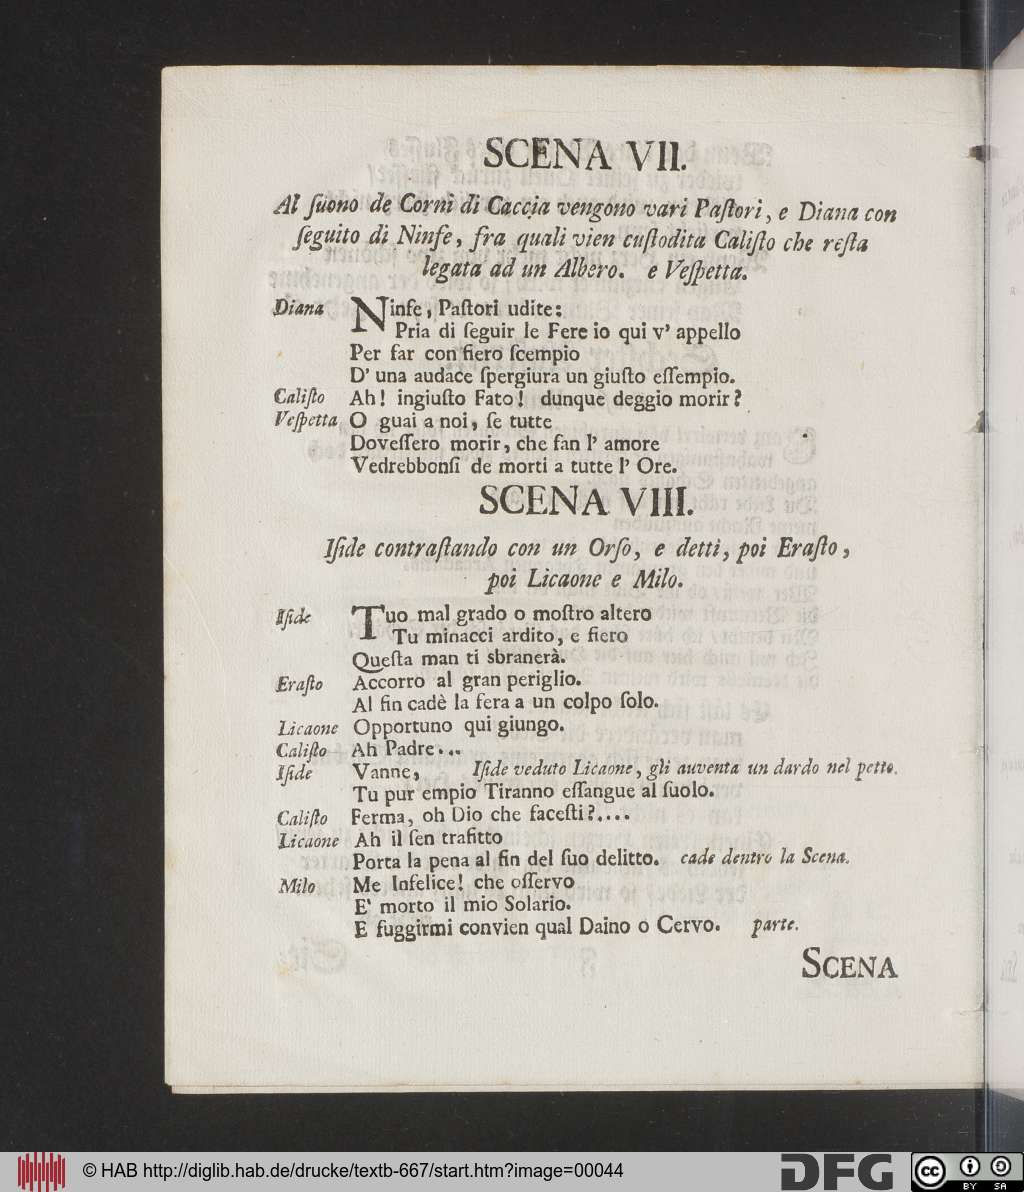 SCENA VII.
Al ſuono de Corni di Caccia vengono vari Paſtori, e Diana con
ſeguito di Ninfe, fra quali vien cuſtodita Caliſto che reſta
legata ad un Albero. e Veſpetta.
Diana Ninfe, Paſtori udite:
Pria di ſeguir le Fere io qui v' appello
Per far con fiero ſcempio
D' una audace ſpergiura un giuſto eſſempio.
Caliſto Ah! ingiuſto Fato! dunque deggio morir?
Veſpetta O guai a noi, ſe tutte
Doveſſero morir, che fan l' amore
Vedrebbonſi de morti a tutte l' Ore.
SCENA VIII.
Iſide contraſtando con un Orſo, e detti, poi Eraſto,
poi Licaone e Milo.
Iſide Tuo mal grado o moſtro altero
Tu minacci ardito, e fiero
Queſta man ti sbranerà.
Eraſto Accorro al gran periglio.
Al fin cadè la fera a un colpo ſolo.
Licaone Opportuno qui giungo.
Caliſto Ah Padre...
Iſide Vanne, Iſide veduto Licaone, gli auventa un dardo nel petto.
Tu pur empio Tiranno eſſangue al ſuolo.
Caliſto Ferma, oh Dio che faceſti?....
Licaone Ah il ſen trafitto
Porta la pena al fin del ſuo delitto. cade dentro la Scena.
Milo Me Infelice! che oſſervo
E' morto il mio Solario.
E fuggirmi convien qual Daino o Cervo. parte.
SCENA
© HAB http://diglib.hab.de/drucke/textb-667/start.htm?image=00044
DFG
cc BY SA